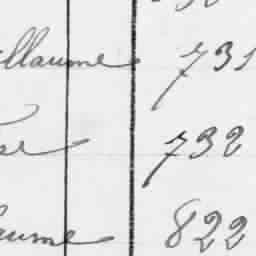 illaume 731
se 732
aume 822